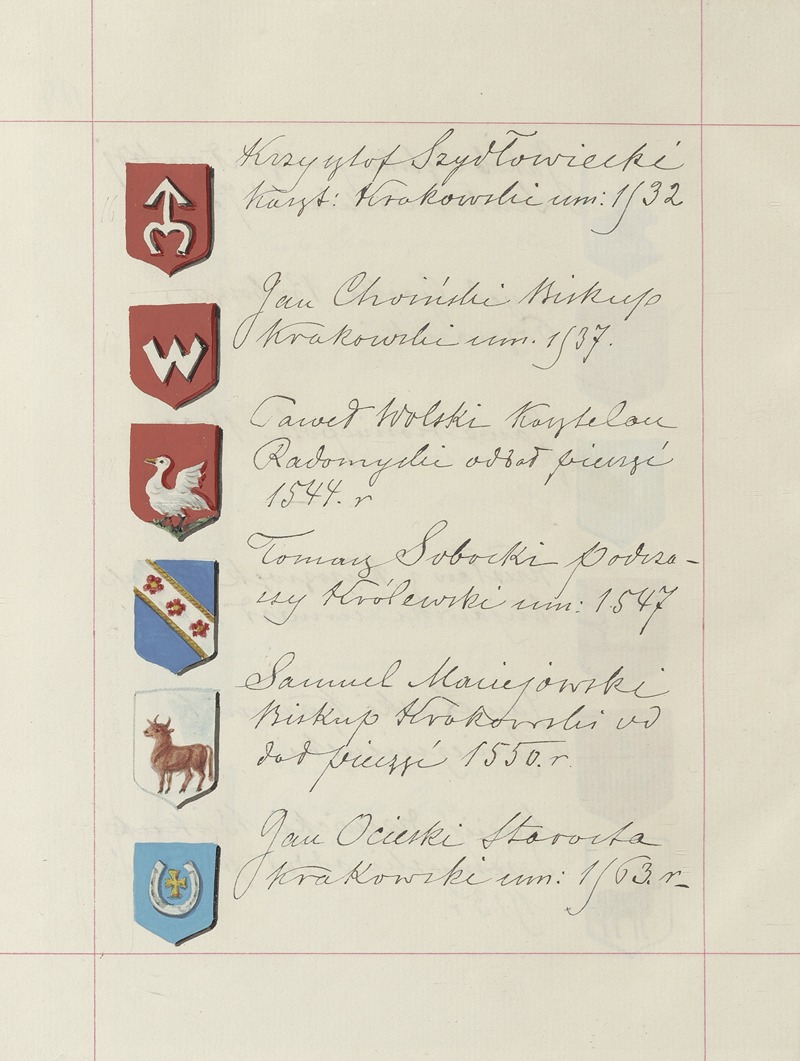 Krzysztof Szydłowiecki
Kaszt: Krakowski um: 1532
Jan Choiński Biskup
Krakowski um. 1537.
Paweł Wolski Kasztelan
Radomyski oddał pieczęć
1544. r
Tomasz Sobocki podcza-
szy Królewski um: 1547
Samuel Maciejowski
Biskup Krakowski od
dał pieczęć 1550. r.
Jan Ocieski Starosta
Krakowski um: 1563. r-
W